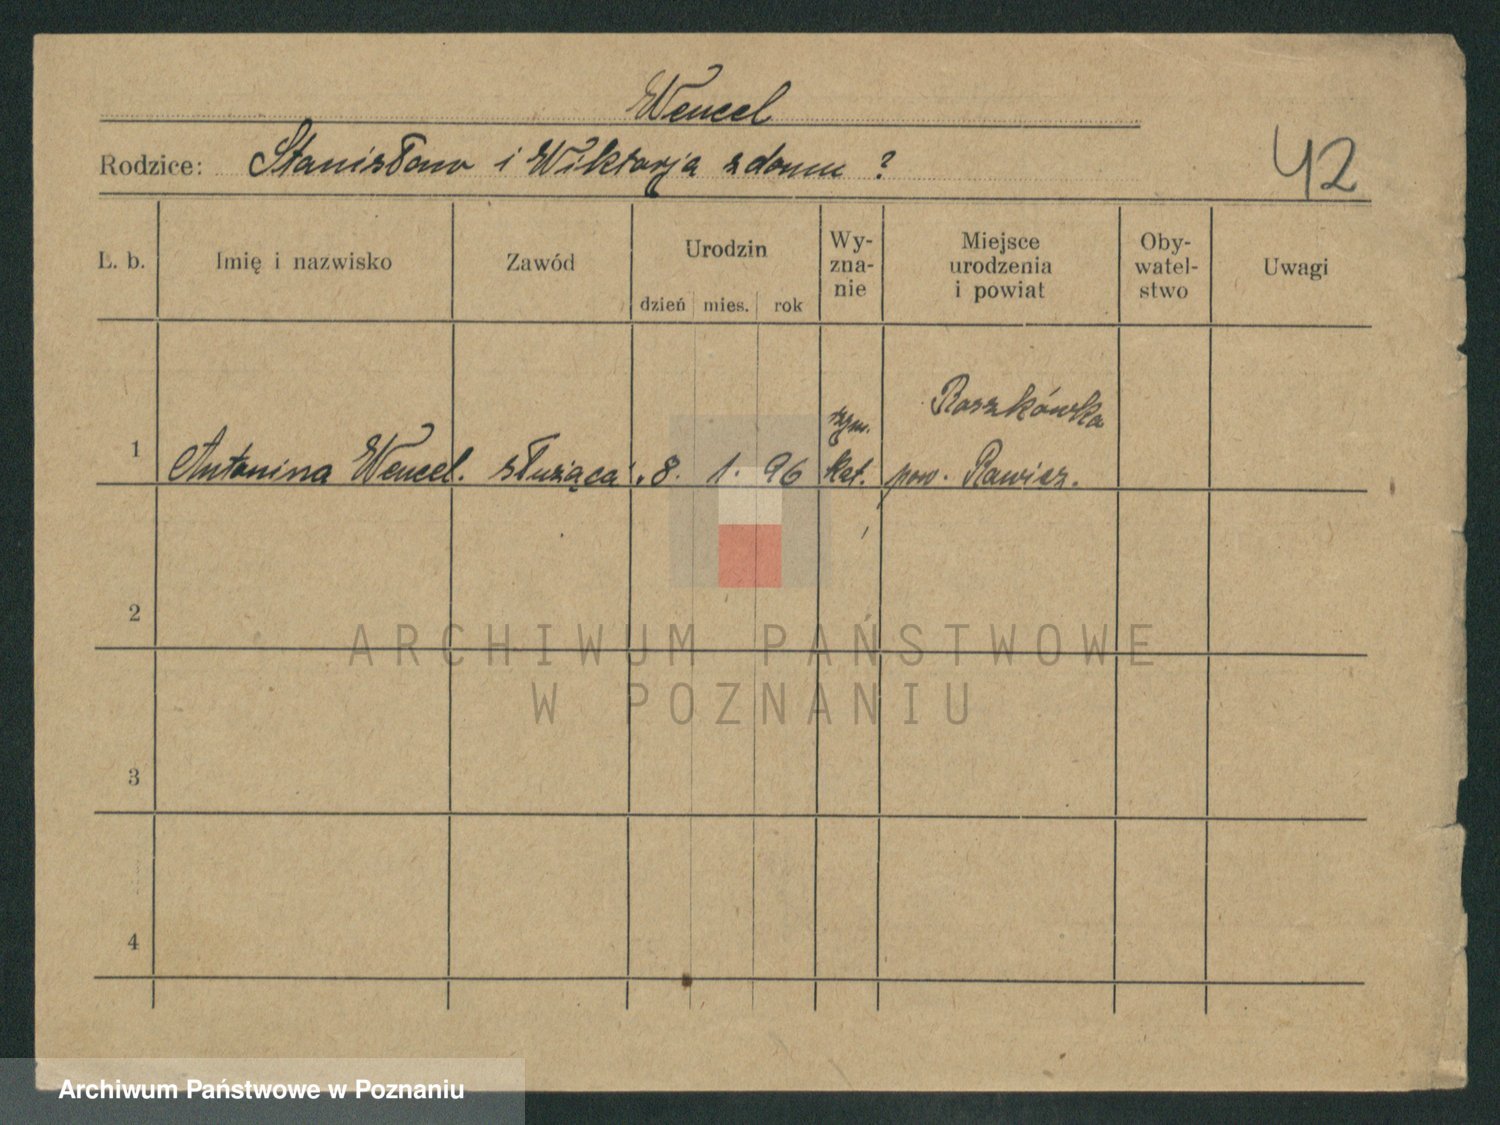 Wencel
Rodzice: Stanisław i Wiktorja z domu ?
42
L. b.
Imię i nazwisko
Zawód
Urodzin
dzień mies. rok
Wy-
zna-
nie
Miejsce
urodzenia
i powiat
Oby-
watel-
stwo
Uwagi
1 Antonina Wencel. służąca 8. 1. 96
rzym.
kat.
Roszkówka
pow. Rawicz.
2
3
4
ARCHIWUM PAŃSTWOWE
W POZNANIU
Archiwum Państwowe w Poznaniu